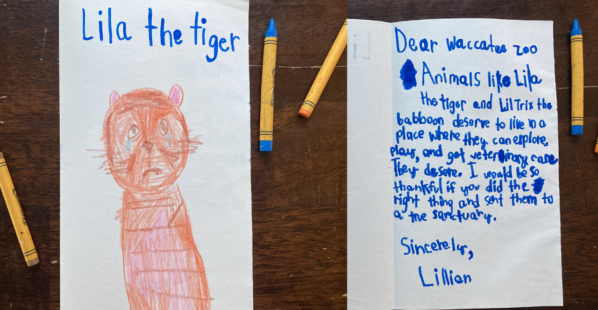 Lila the tiger
Dear Waccatee zoo
Animals like Lila
the tiger and Lil Tris the
babboon deserve to live in a
place where they can explore,
play, and get veterinary care
They desere. I would be so
thankful if you did the
right thing and sent them to
a true sanctuary.
Sincerely,
Lillian